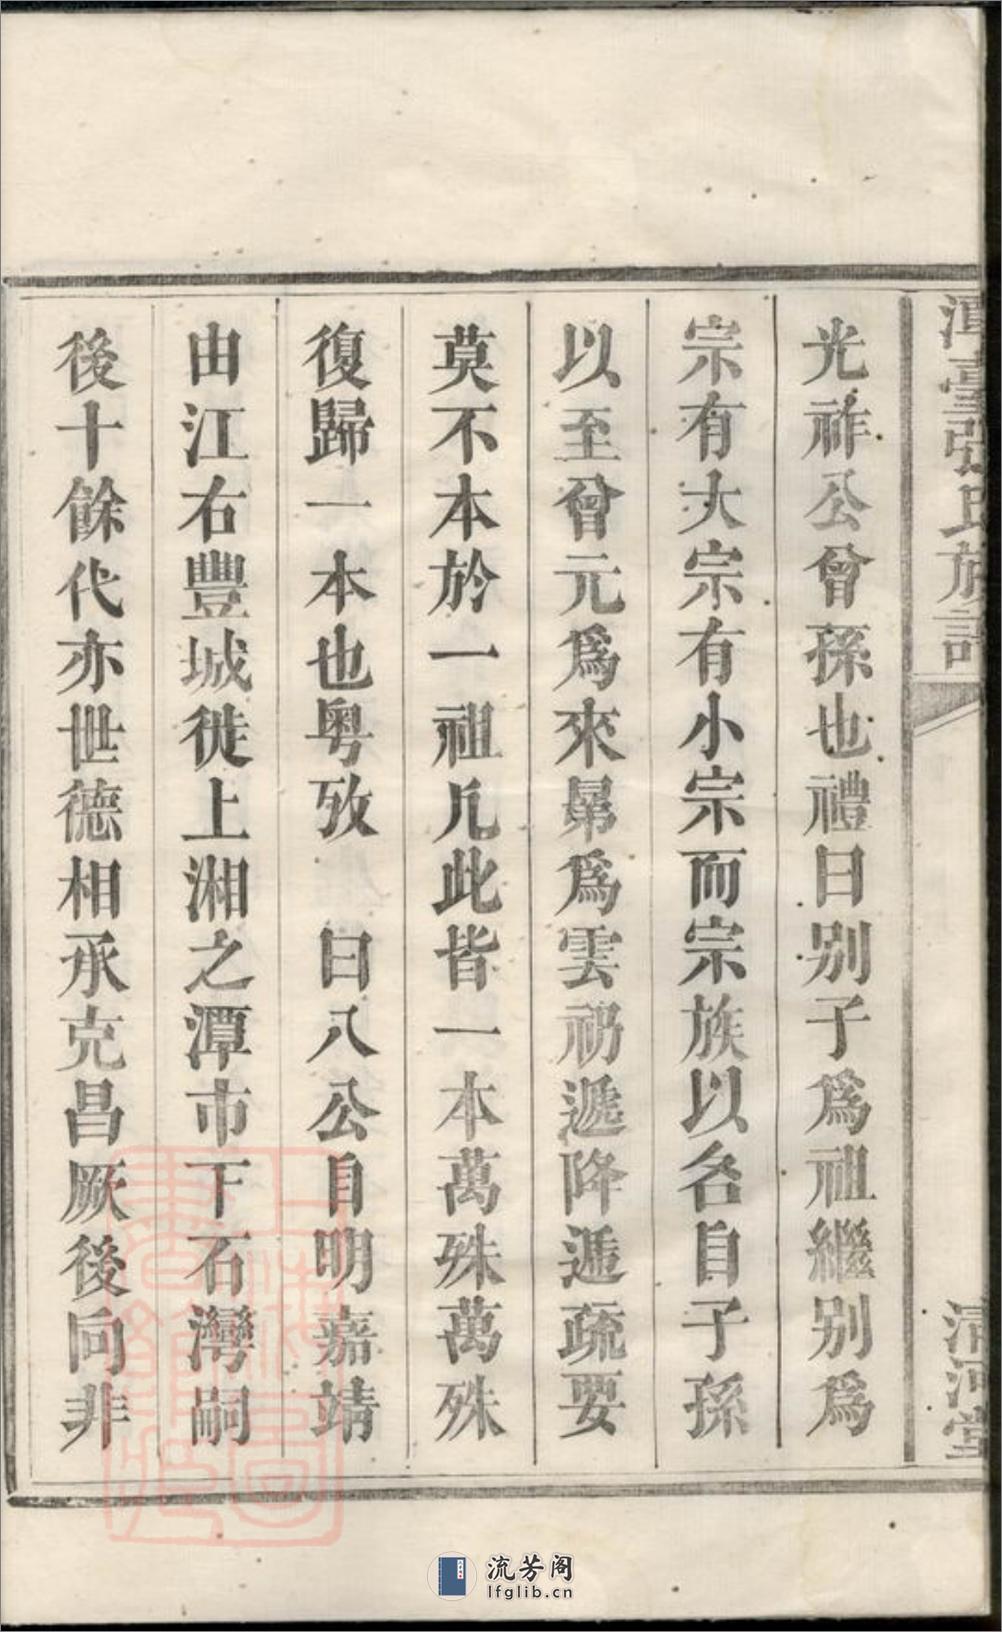 潭臺張氏族譜
清河堂
光祚公曾孫也禮曰別子為祖繼別為
宗有大宗有小宗而宗族以名自子孫
以至曾元為來晜為雲礽遞降遞疏要
莫不本於一祖凡此皆一本萬殊萬殊
復歸一本也粤攷 日八公自明嘉靖
由江右豐城徙上湘之潭市下石灣嗣
後十餘代亦世德相承克昌厥後向非
上海圖書館藏
流芳阁
lfglib.cn